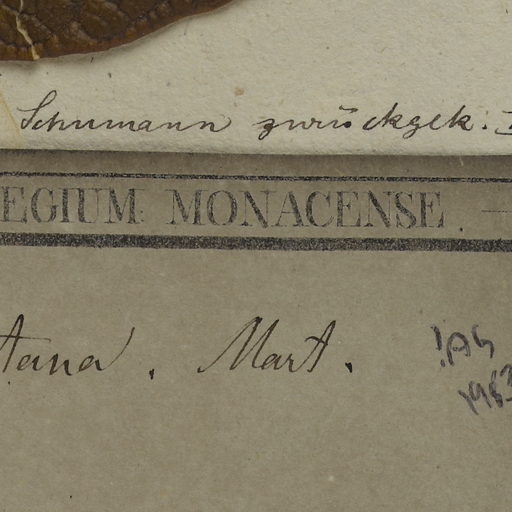 Schumann zurückgek.
EGIUM MONACENSE
tana. Mart.
!AG
1983